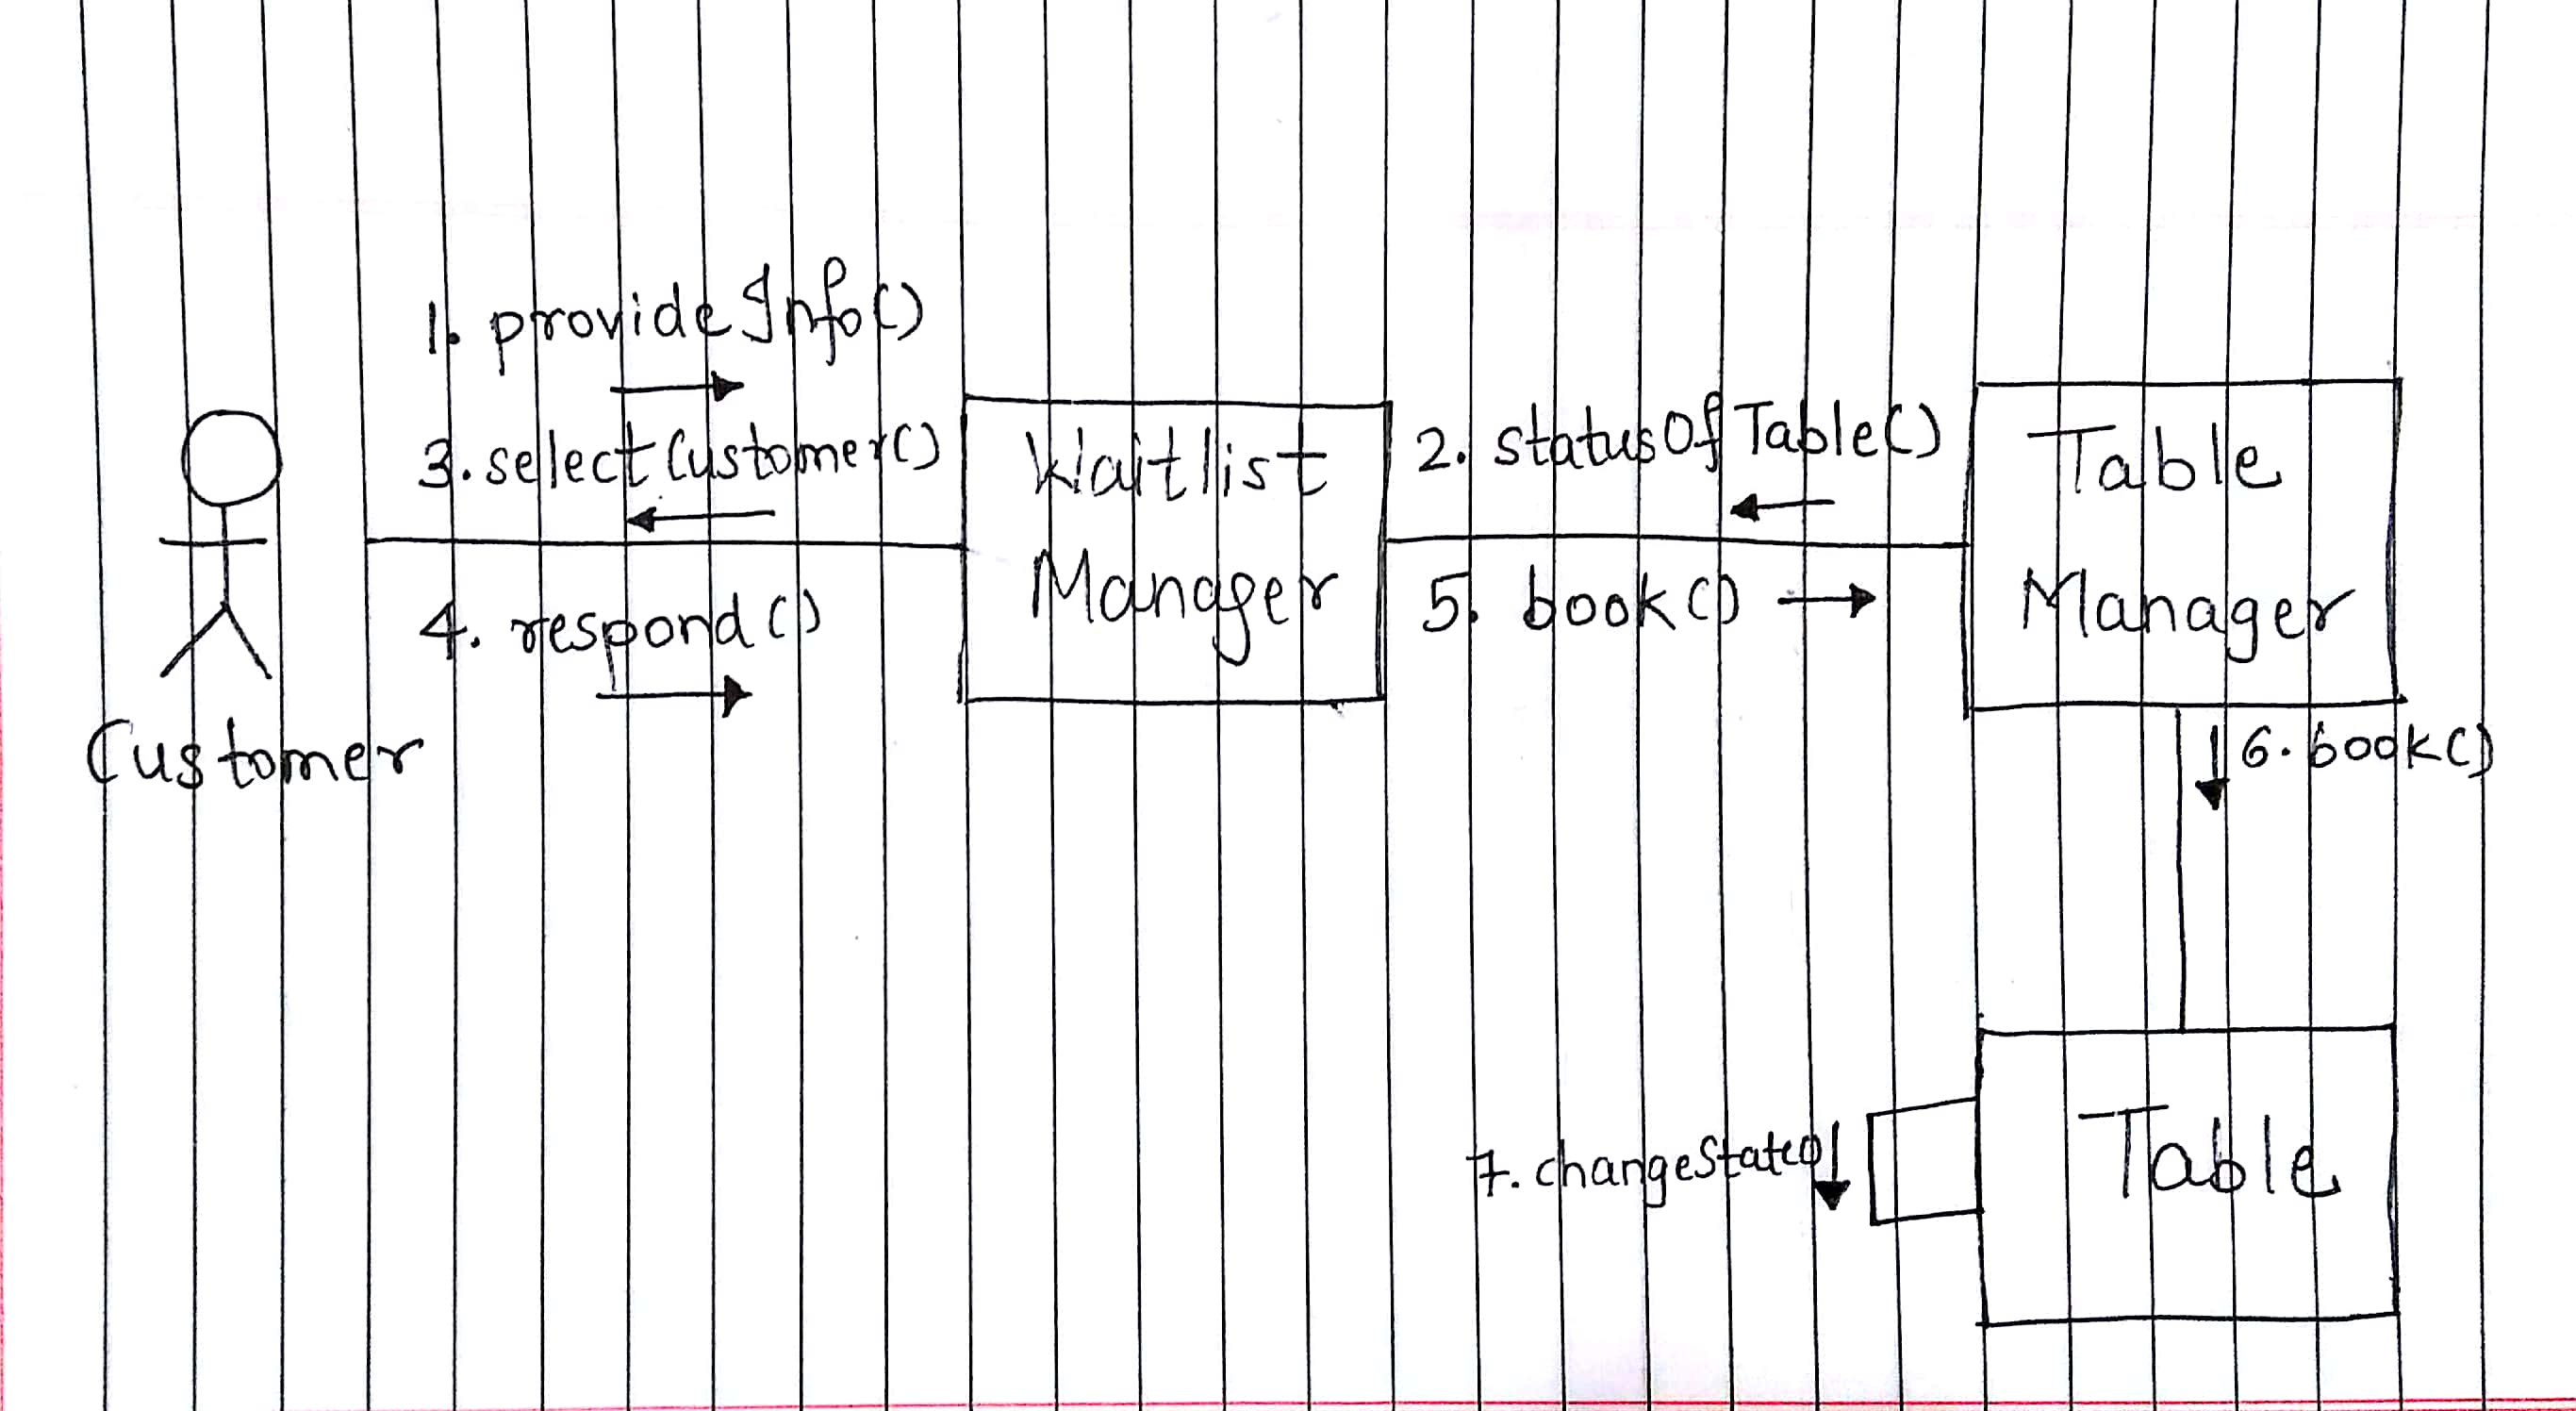 1. provideInfo()
3. selectCustomer()
4. respond()
Customer
Waitlist
Manager
2. statusOfTable()
5. book()
Table
Manager
6. book()
7. changeState()
Table